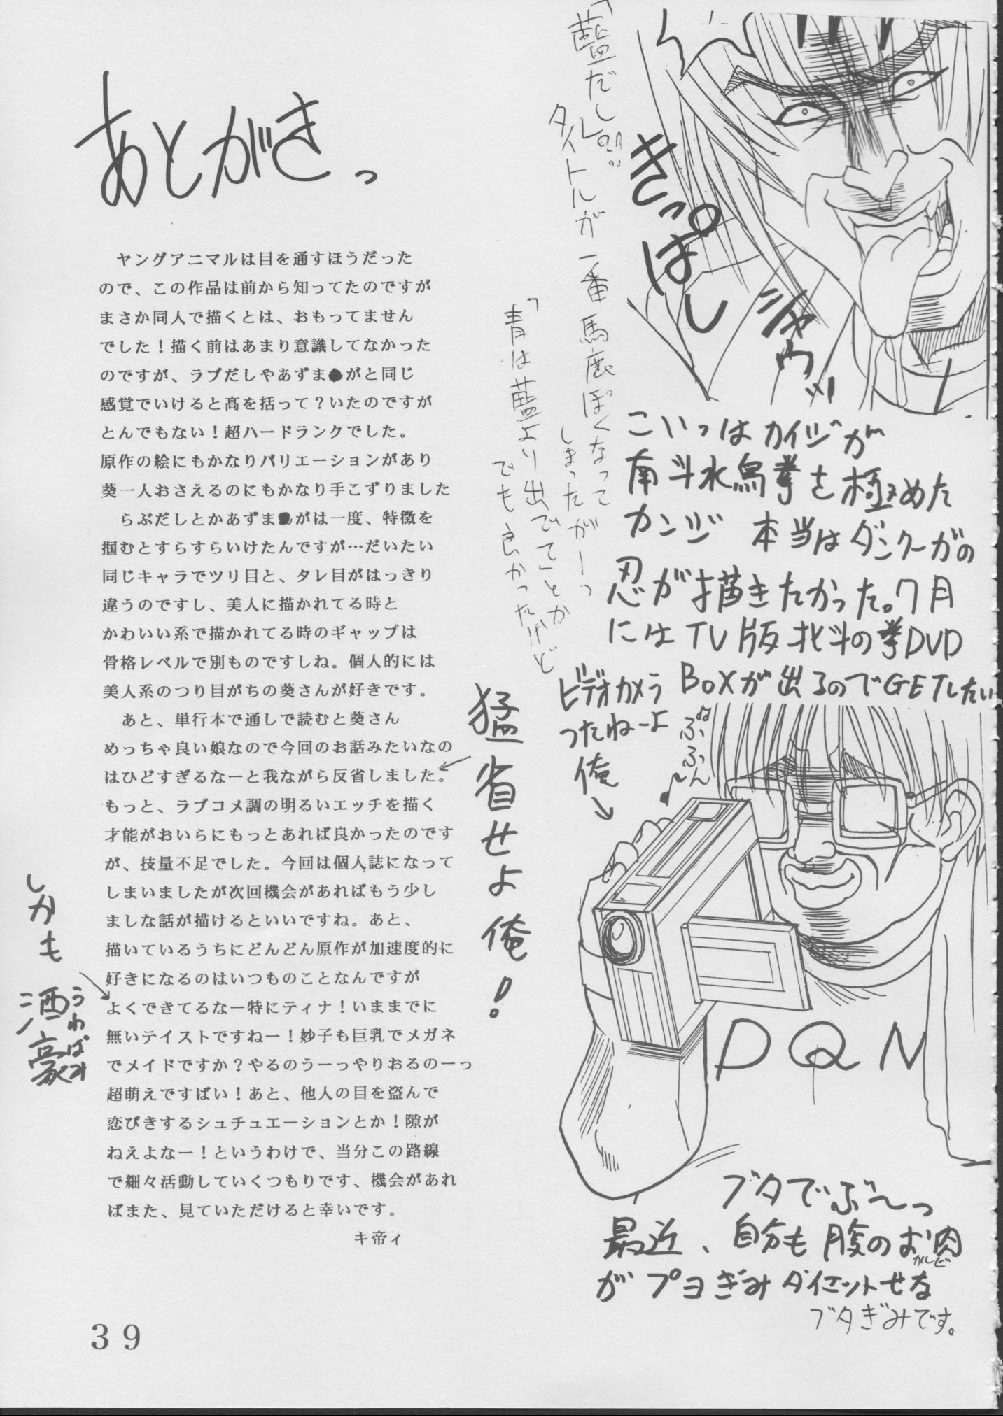 あとがきっ
ヤングアニマルは目を通すほうだった
ので、この作品は前から知ってたのですが
まさか同人で描くとは、おもってません
でした！描く前はあまり意識してなかった
のですが、ラブだしやあずま●がと同じ
感覚でいけると高を括って？いたのですが
とんでもない！超ハードランクでした。
原作の絵にもかなりバリエーションがあり
葵一人おさえるのにもかなり手こずりました
らぶだしとかあずま●がは一度、特徴を
掴むとすらすらいけたんですが…だいたい
同じキャラでツリ目と、タレ目がはっきり
違うのですし、美人に描かれてる時と
かわいい系で描かれてる時のギャップは
骨格レベルで別ものですしね。個人的には
美人系のつり目がちの葵さんが好きです。
あと、単行本で通しで読むと葵さん
めっちゃ良い娘なので今回のお話みたいなの
はひどすぎるなーと我ながら反省しました。
もっと、ラブコメ調の明るいエッチを描く
才能がおいらにもっとあれば良かったのです
が、技量不足でした。今回は個人誌になって
しまいましたが次回機会があればもう少し
ましな話が描けるといいですね。あと、
描いているうちにどんどん原作が加速度的に
好きになるのはいつものことなんですが
よくできてるなー特にティナ！いままでに
無いテイストですねー！妙子も巨乳でメガネ
でメイドですか？やるのうーっやりおるのーっ
超萌えですばい！あと、他人の目を盗んで
恋びきするシュチュエーションとか！隙が
ねえよなー！というわけで、当分この路線
で細々活動していくつもりです、機会があれ
ばまた、見ていただけると幸いです。
キ帝ィ
しかも
酒豪
うわばみ
猛省せよ俺！
「藍だし」
タイトルが一番馬鹿ぽくなって
しまったがーっ
「青は藍より出でて」とか
でも良かったけど
きっぱし
シャウッ
こいつはカイジが
南斗水鳥拳を極めた
カンジ 本当はダンクーガの
忍が描きたかった。7月
にはTV版北斗の拳DVD
BOXが出るのでGETしたい
ビデオカメラ
うつたねーよ
俺
ぷふん
DQN
ブタでぶ〜っ
最近、自分も腹のお肉
がプヨぎみダイエットせな
ブタぎみです。
39